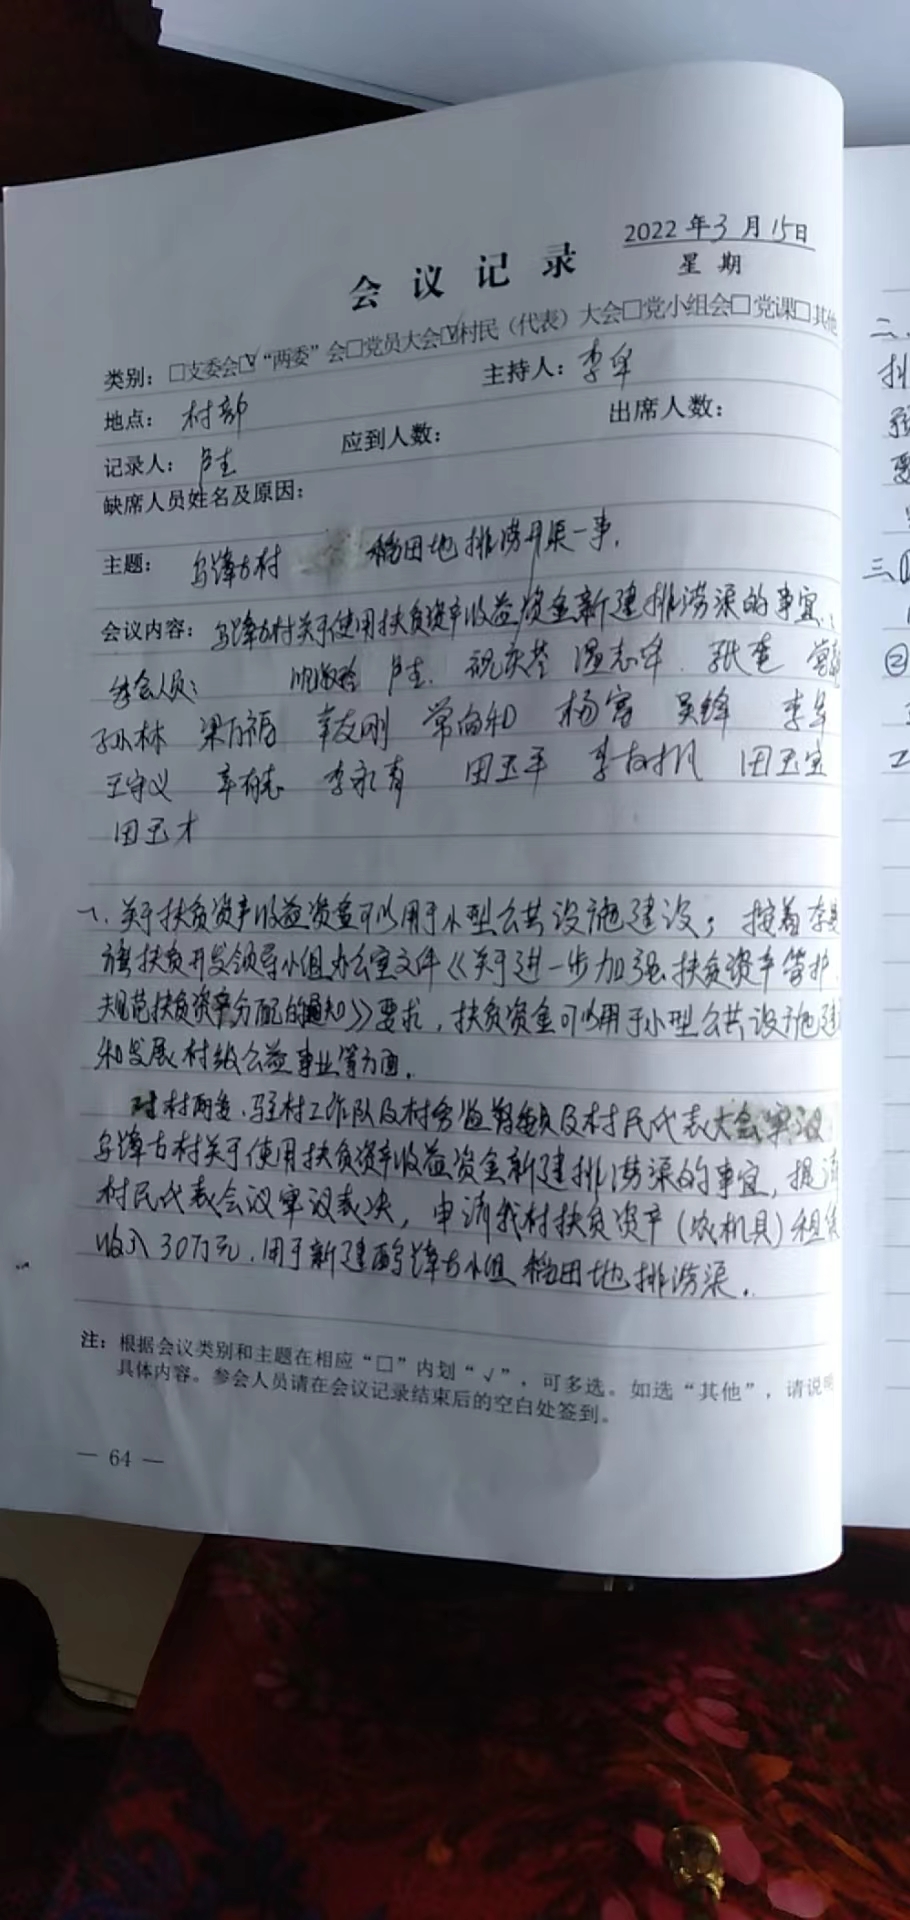 2022年3月15日
会议记录 星期
类别：□支委会☑“两委”会□党员大会☑村民（代表）大会□党小组会□党课□其他
地点：村部 主持人：李军
记录人：卢志 应到人数： 出席人数：
缺席人员姓名及原因：
主题： 稻田地排涝开渠一事.
会议内容： 村关于使用扶贫资产收益资金新建排涝渠的事宜.
参会人员：
孙林 梁万福 辛友刚 常向和 杨富 吴锋 李军
王守义 辛有志 李永有 田玉平 田玉宝
田玉才
一、关于扶贫资产收益资金可以用于小型公共设施建设；按着
旗扶贫开发领导小组办公室文件《关于进一步加强扶贫资产管护
规范扶贫资产分配的通知》要求，扶贫资金可以用于小型公共设施建
和发展村级公益事业等方面.
对村两委、驻村工作队及村务监督委员及村民代表大会审议
村关于使用扶贫资产收益资金新建排涝渠的事宜，提请
村民代表会议审议表决，申请我村扶贫资产（农机具）租赁
收入30万元.用于新建 小组稻田地排涝渠.
注：根据会议类别和主题在相应“□”内划“√”，可多选。如选“其他”，请说明
具体内容。参会人员请在会议记录结束后的空白处签到。
— 64 —
二、
三、
②